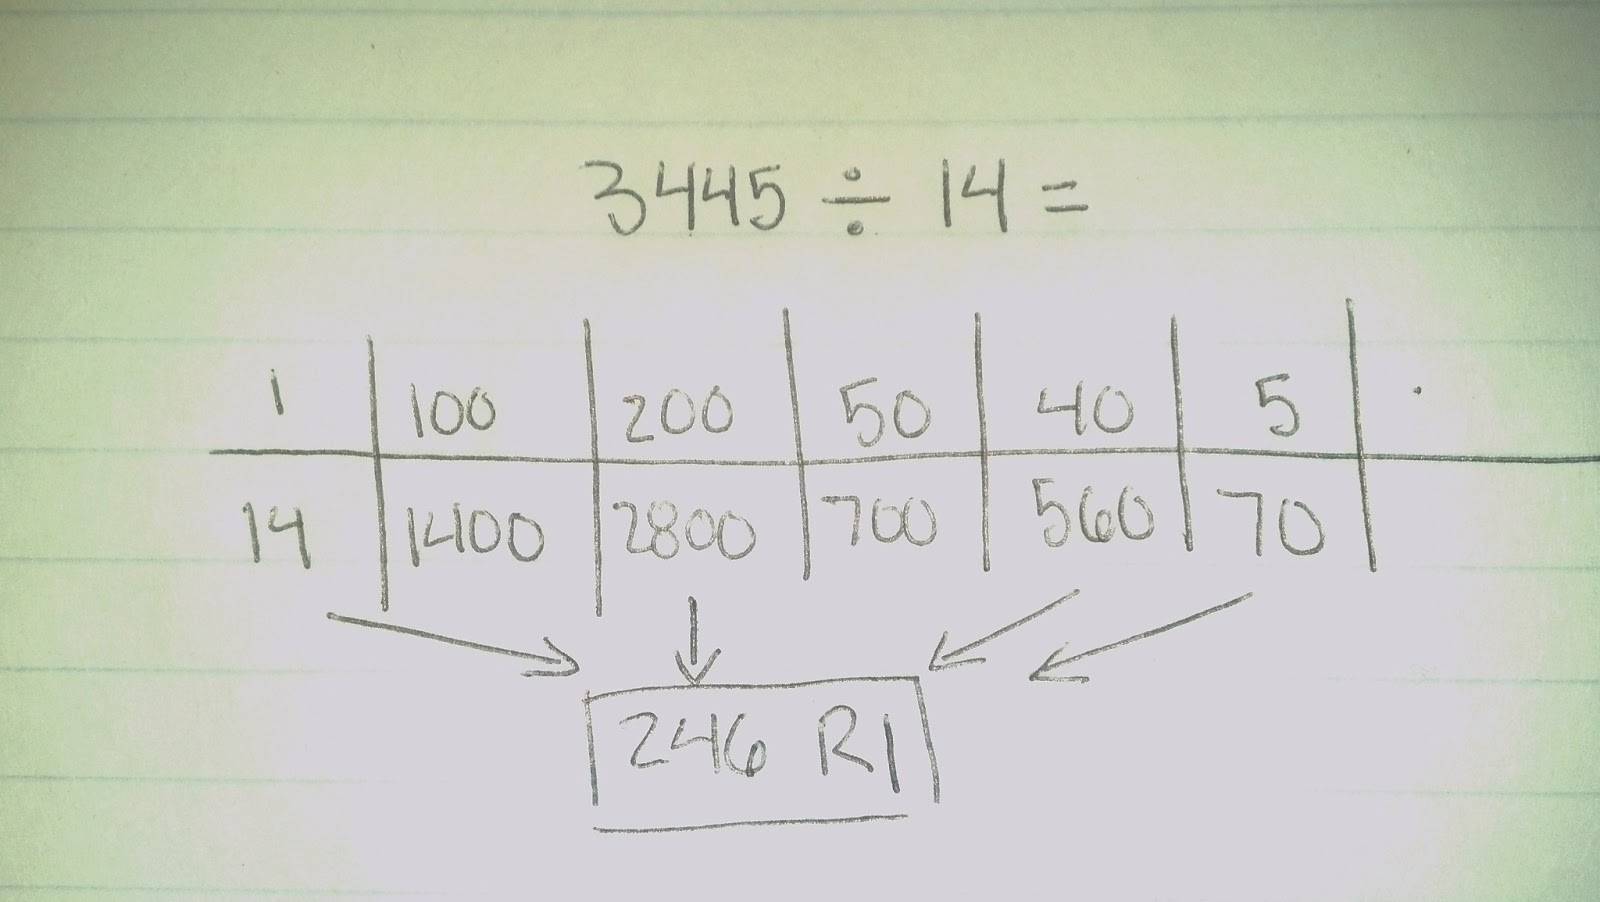 3445 ÷ 14 =
1 100 200 50 40 5
14 1400 2800 700 560 70
246 R1